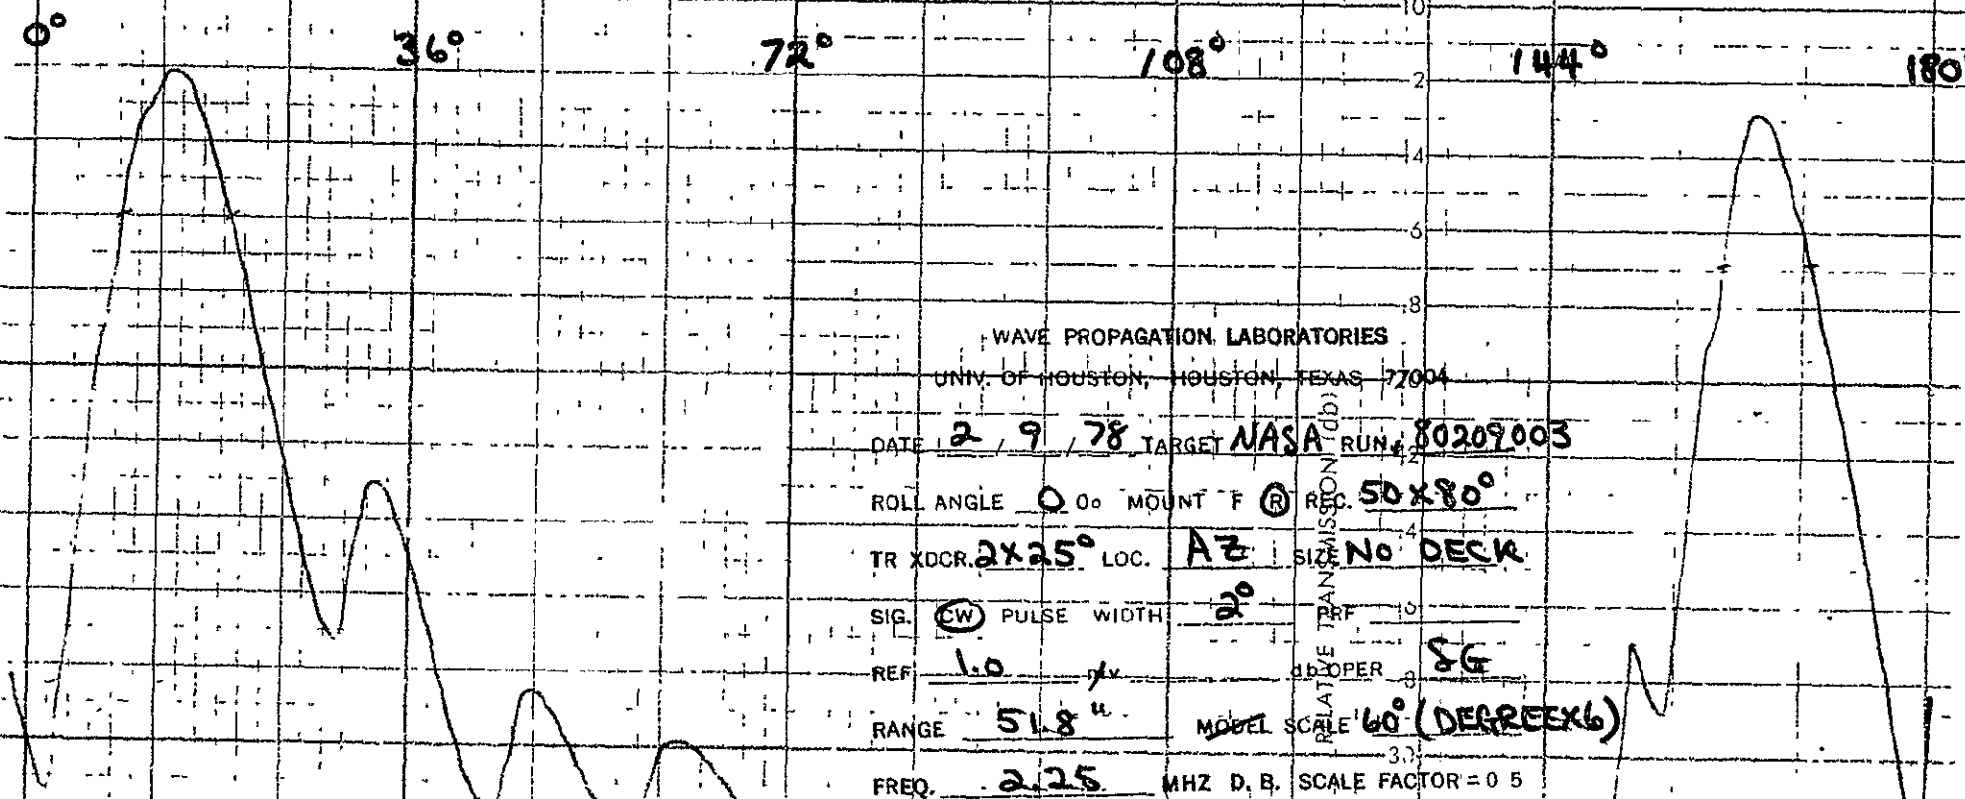 0° 36° 72° 108° 144° 180°
10
2
4
6
8
WAVE PROPAGATION LABORATORIES
UNIV. OF HOUSTON, HOUSTON, TEXAS 77004
DATE 2 / 9 / 78 TARGET NASA RUN 80209003
ROLL ANGLE 0 0° MOUNT F R REC. 50X80°
TR XDCR. 2X25° LOC. AZ SIZE NO DECK
SIG. CW PULSE WIDTH 2° PRF
REF 1.0 db OPER SG
RANGE 51.8" MODEL SCALE 60° (DEGREEX6)
FREQ. 2.25 MHZ D. B. SCALE FACTOR = 0 5
RELATIVE TRANSMISSION (db)
2
4
6
8
30